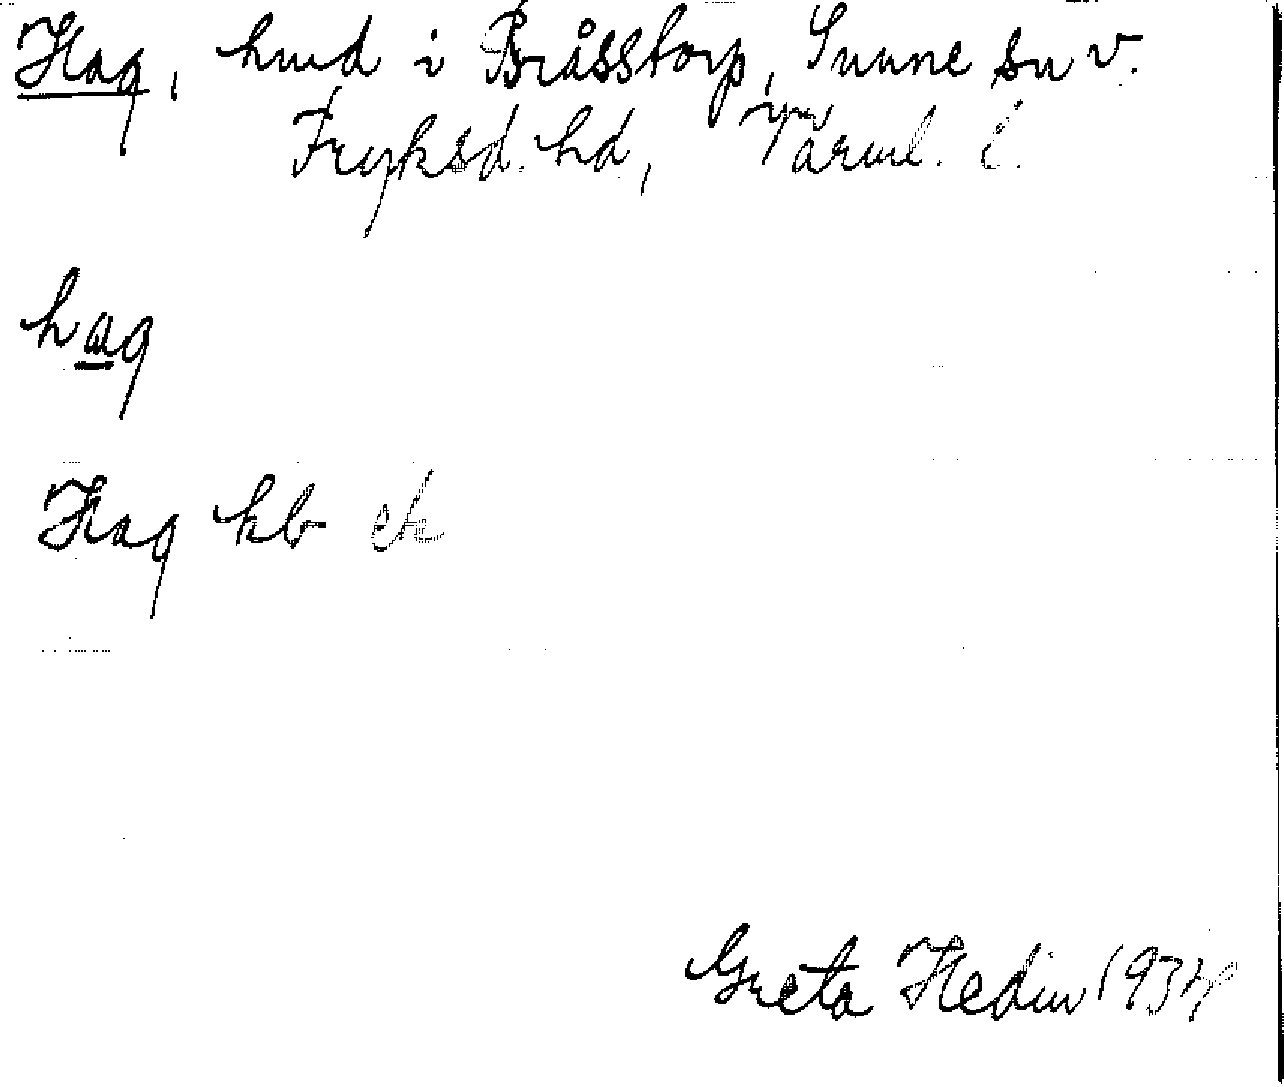 Hag, hmd i Bråsstorp, Sunne sn v.
Fryksd. hd, Värml. l.
hag
Hag kb
Greta Hedin 1934